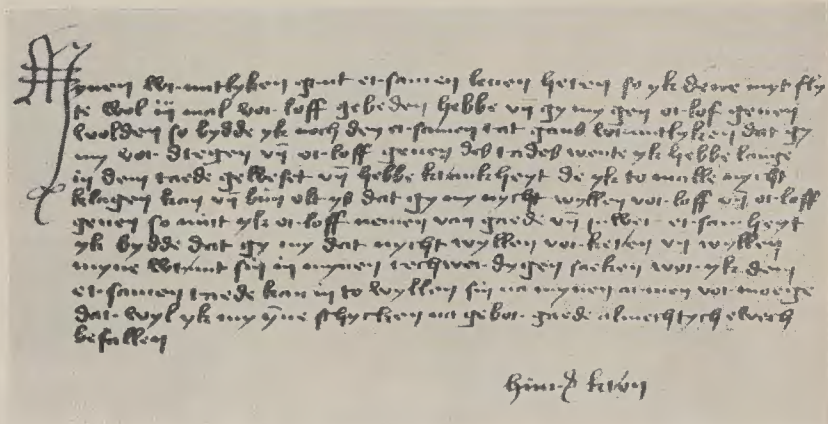 Mynen vruntlyken grut er samen leven heren so yk dene myt fly
te wol iij mal vor loff gebeden hebbe vn gy my gen or lof geuen
wolden so bydde yk noch den er samen rat gans vruntlyken dat gy
my vor dregen vn or loff geuen des rades wente yk hebbe lange
in dem raede geweset vn hebbe kranckheyt de yk to malle nycht
klagen kan vn bin ok ys dat gy my nycht wyllen vor loff vn or loff
geuen so mut yk or loff nemen van gaede vn juwer er sam heyt
yk bydde dat gy my dat nycht wyllen vor keren vn wyllen
myne vrunt sin in mynen rechwer dygen saeken wor yk dem
er samen raede kan in to wyllen sin na mynen ar men vor moege
dat wyl yk my yne schycken na gebor gaede almechtych
befallen